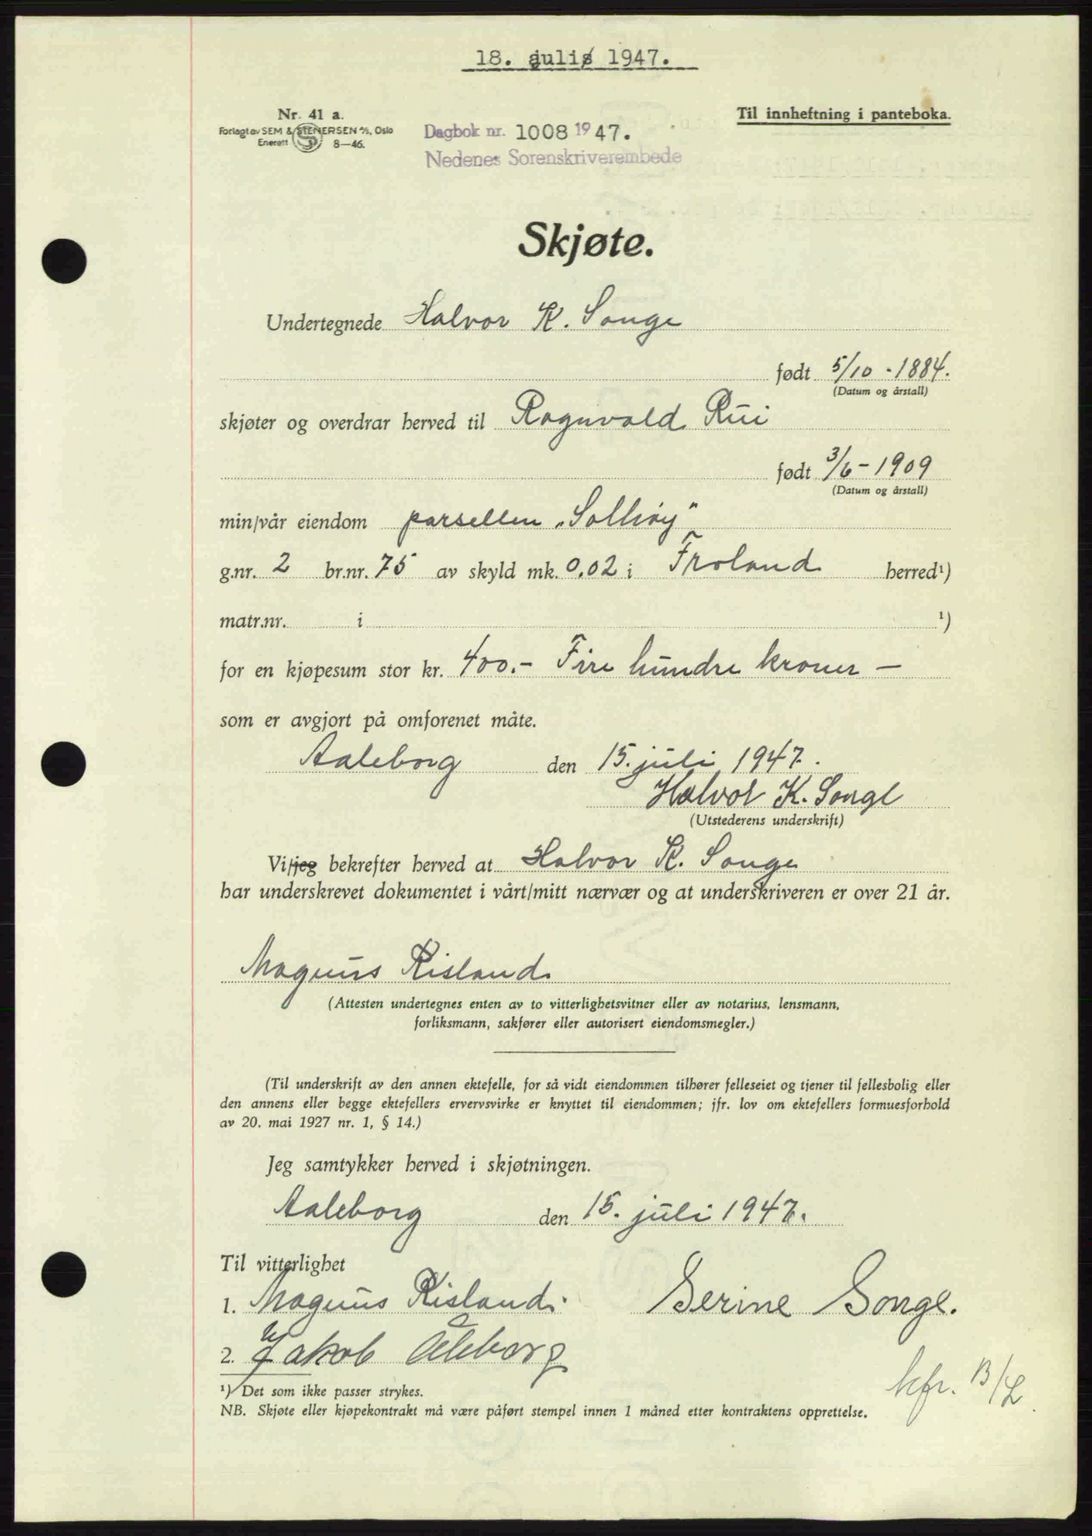 18. juli 1947.
Nr. 41 a.
Til innheftning i panteboka.
Forlagt av SEM & STENERSEN A/S, Oslo
Enerett 8—46.
Dagbok nr. 1008 1947.
Nedenes Sorenskriverembede
Skjøte.
Undertegnede Halvor K. Songe
født 5/10 - 1884.
(Datum og årstall)
skjøter og overdrar herved til Ragnvald Rui
født 3/6 - 1909
(Datum og årstall)
min/vår eiendom parsellen „Solhøy"
g.nr. 2 br.nr. 75 av skyld mk. 0.02 i Froland herred¹)
matr.nr. i ¹)
for en kjøpesum stor kr. 400.- Fire hundre kroner —
som er avgjort på omforenet måte.
Aaleborg den 15. juli 1947.
Halvor K. Songe
(Utstederens underskrift)
Vi/jeg bekrefter herved at Halvor K. Songe
har underskrevet dokumentet i vårt/mitt nærvær og at underskriveren er over 21 år.
Magnus Risland.
(Attesten undertegnes enten av to vitterlighetsvitner eller av notarius, lensmann,
forliksmann, sakfører eller autorisert eiendomsmegler.)
(Til underskrift av den annen ektefelle, for så vidt eiendommen tilhører felleseiet og tjener til fellesbolig eller
den annens eller begge ektefellers ervervsvirke er knyttet til eiendommen; jfr. lov om ektefellers formuesforhold
av 20. mai 1927 nr. 1, § 14.)
Jeg samtykker herved i skjøtningen.
Aaleborg den 15. juli 1947.
Til vitterlighet
1. Magnus Risland. Serine Songe.
2. Jakob Åleborg
¹) Det som ikke passer strykes.
NB. Skjøte eller kjøpekontrakt må være påført stempel innen 1 måned etter kontraktens opprettelse.